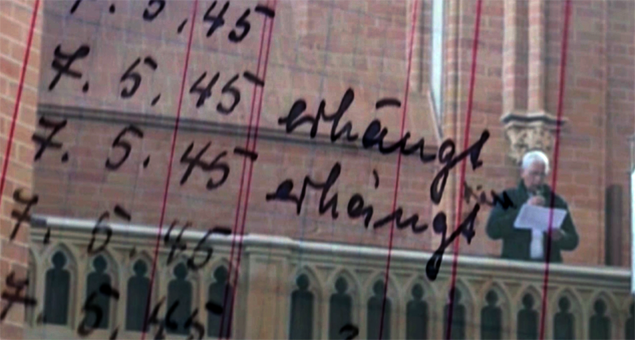 7. 5. 45
7. 5. 45 erhängt
7. 5. 45 erhängt
7. 5. 45
7. 5. 45